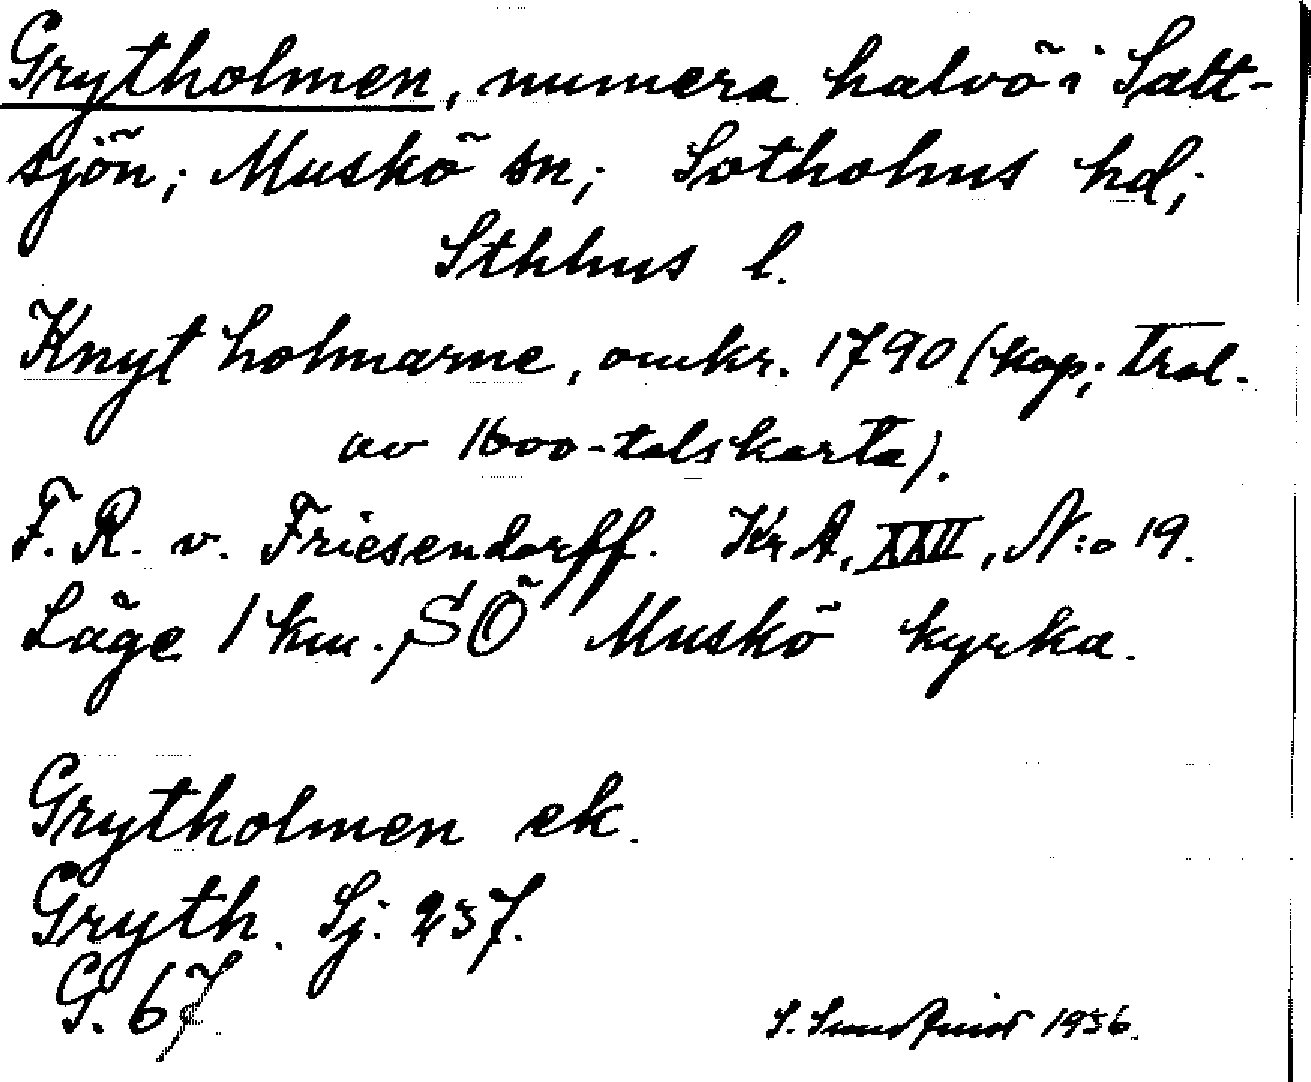 Grytholmen, numera halvö i Salt-
sjön; Muskö sn; Sotholms hd;
Sthlms l.
Knytholmarne, omkr. 1790 (kop; trol.
av 1600-talskarta).
F. R. v. Friesendorff. Kr A, XXII, N:o 19.
Läge 1 km. SÖ Muskö kyrka.
Grytholmen ek.
Gryth. Sj: 237.
G. 67
S. 1936.